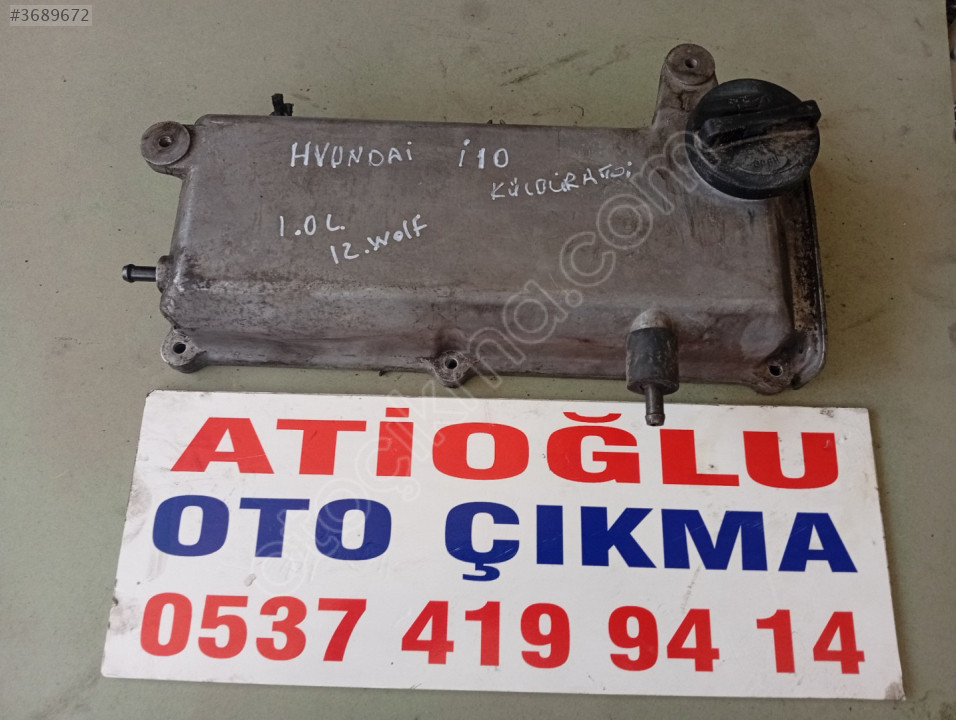 #3689672
HVUNDAİ i10
KÜLBÜRATÖİ
1.0 L.
12.WOLF
otoçıkma.com
ATİOĞLU
OTO ÇIKMA
0537 419 94 14